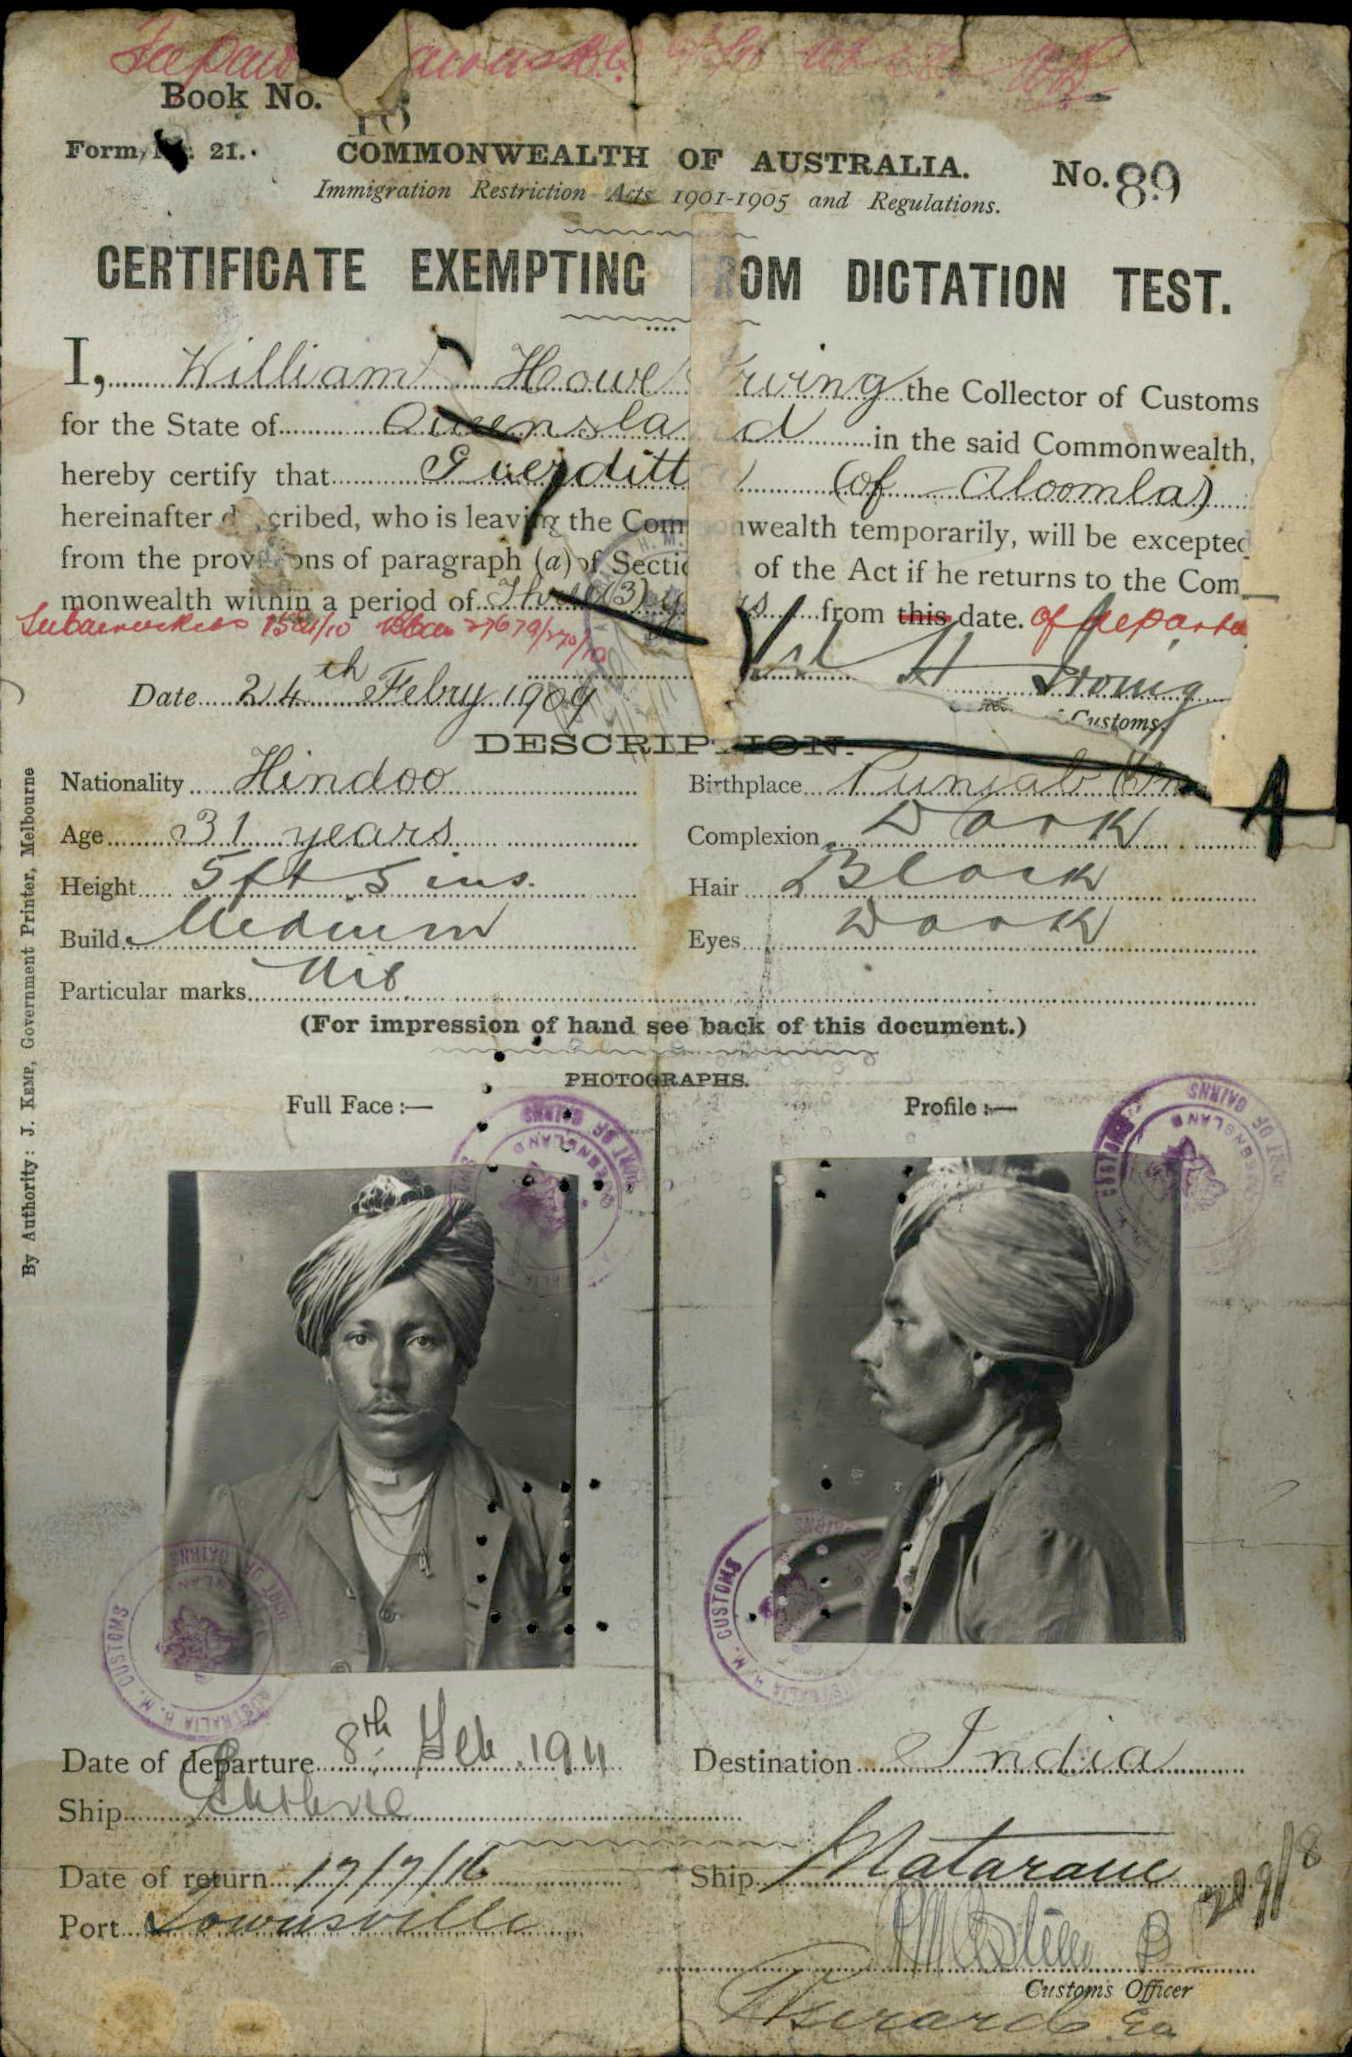 Book No.
Form 21.
COMMONWEALTH OF AUSTRALIA.
No. 89
Immigration Restriction Acts 1901-1905 and Regulations.
CERTIFICATE EXEMPTING ROM DICTATION TEST.
I, William Howe Irving the Collector of Customs
for the State of Queensland in the said Commonwealth,
hereby certify that Guerditt (of Aloomba)
hereinafter d cribed, who is leaving the Com onwealth temporarily, will be excepted
from the prov ons of paragraph (a) of Sectio of the Act if he returns to the Com
monwealth within a period of Three (3) y rs from this date. of departu
15 /10 27679/270/10
H Irving
Date 24th Febry 1909
Customs.
DESCRIPTION.
Nationality Hindoo
Birthplace Punjab
Age 31 years
Complexion Dark
Height 5ft 5 ins.
Hair Black
Build Medium
Eyes Dark
Particular marks Nil
(For impression of hand see back of this document.)
PHOTOGRAPHS.
Full Face :—
Profile :—
PORT OF CAIRNS
QUEENSLAND
CUSTOMS
PORT OF CAIRNS
QUEENSLAND
AUSTRALIA H. M. CUSTOMS
PORT OF CAIRNS
H. M. CUSTOMS
CAIRNS
Date of departure 8th Feb. 1911
Destination India
Ship
Date of return 17/7/16
Ship Mataram
Port Townsville
Customs Officer
By Authority: J. KEMP, Government Printer, Melbourne